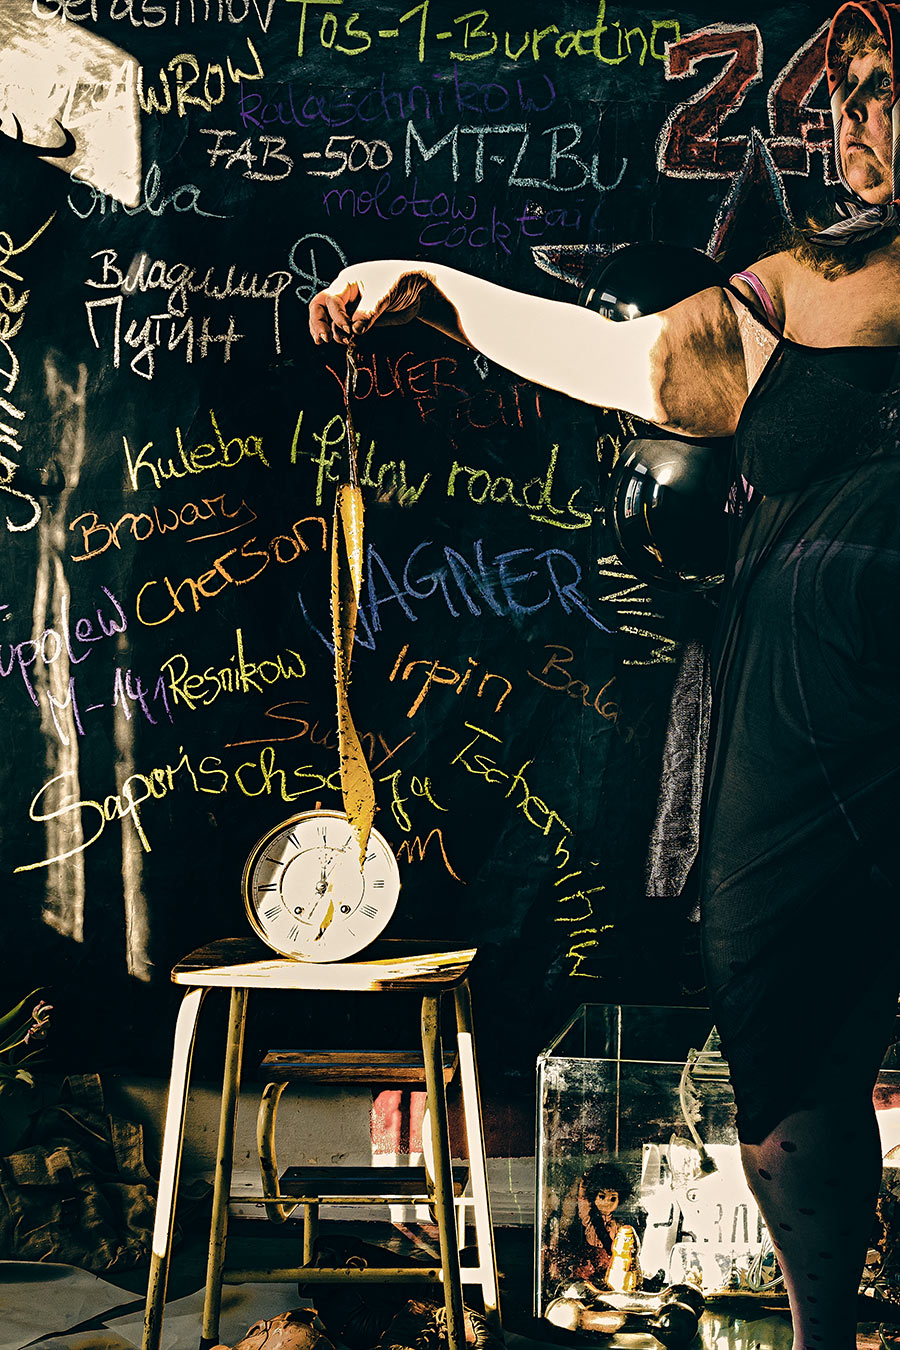 Gerasimov
Tos-1-Buratino
WROW
kalaschnikow
24
FAB-500
MT-LBu
Simba
molotow
cocktail
Владимир
Путин
VOLKER
Kuleba
follow roads
Browary
Cherson
WAGNER
M-141
Resnikow
Irpin
Sumy
Saporischschja
Tschernihiw